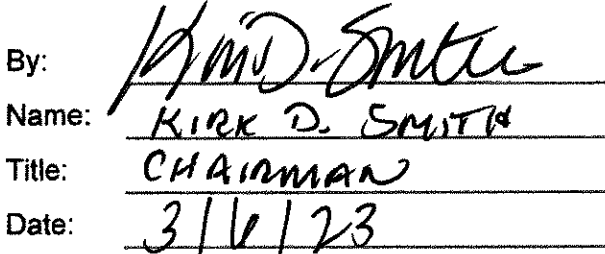 By: Kirk D. Smith
Name: KIRK D. SMITH
Title: CHAIRMAN
Date: 3/6/23